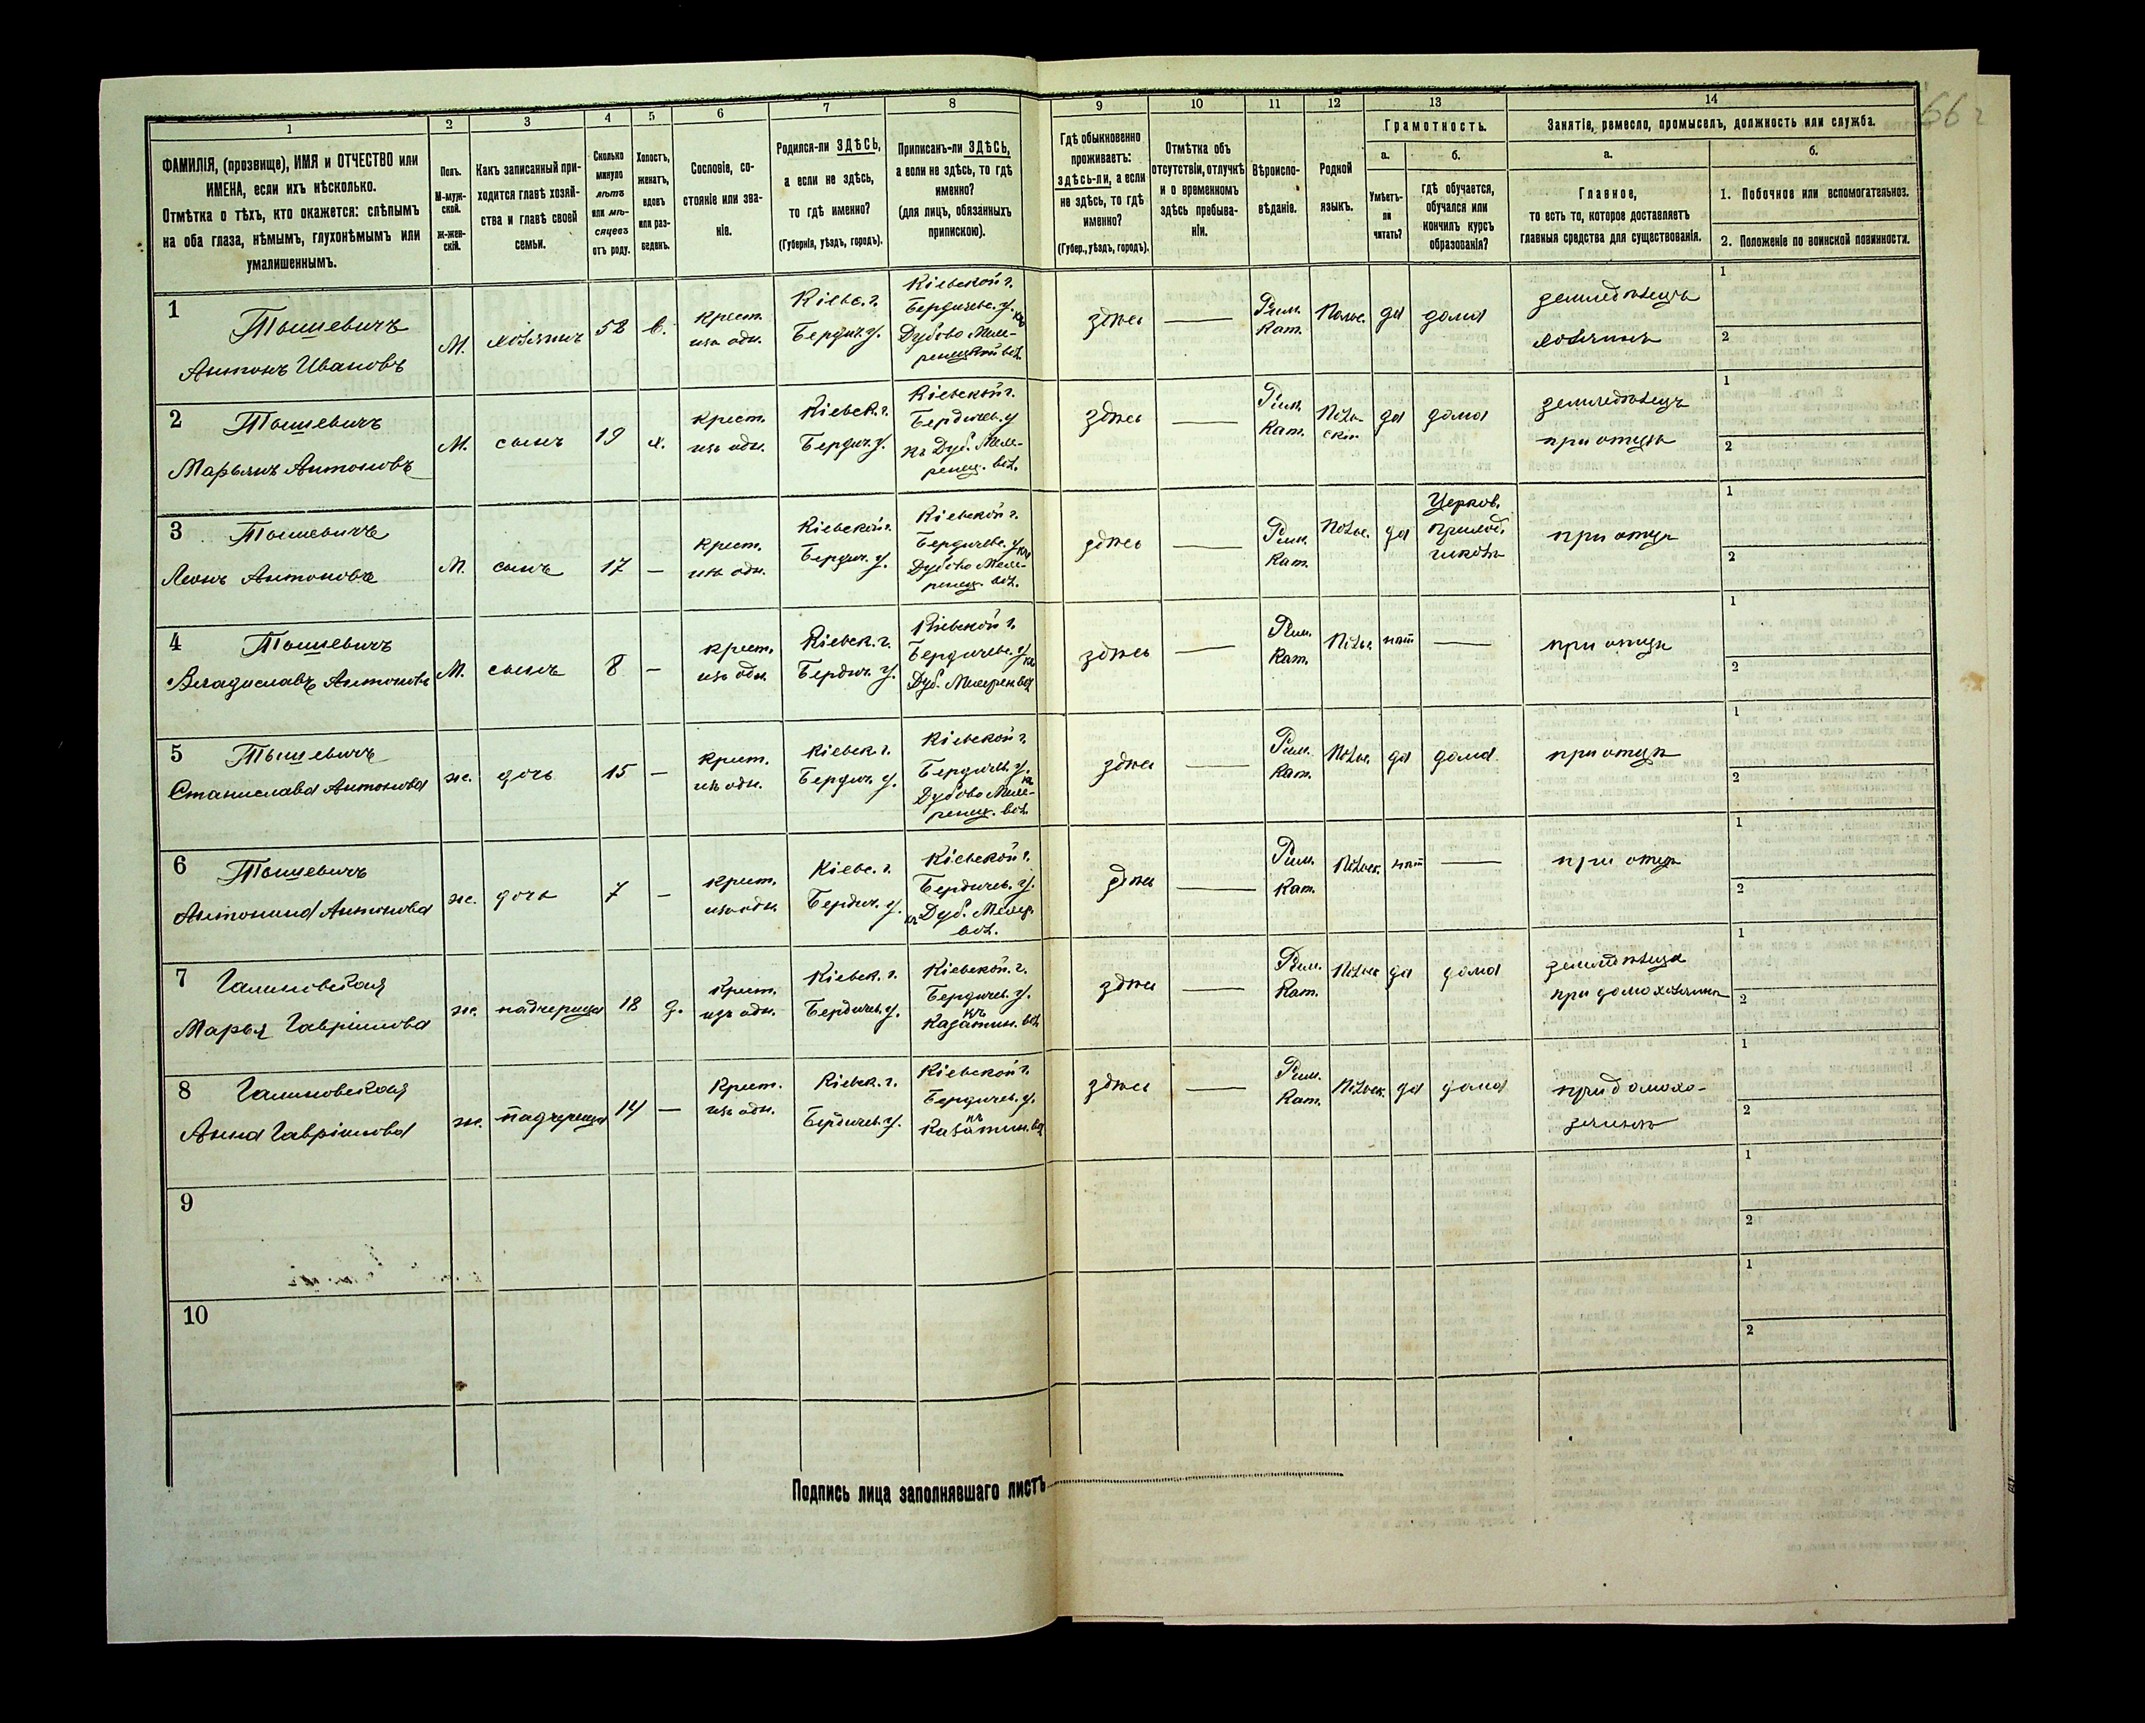 66
1
2
3
4
5
6
7
8
9
10
11
12
13
14
ФАМИЛІЯ, (прозвище), ИМЯ и ОТЧЕСТВО или
ИМЕНА, если ихъ нѣсколько.
Отмѣтка о тѣхъ, кто окажется: слѣпымъ
на оба глаза, нѣмымъ, глухонѣмымъ или
умалишеннымъ.
Полъ.
М-муж-
ской.
Ж-жен-
скій.
Какъ записанный при-
ходится главѣ хозяй-
ства и главѣ своей
семьи.
Сколько
минуло
лѣтъ
или мѣ-
сяцевъ
отъ роду.
Холостъ,
женатъ,
вдовъ
или раз-
веденъ.
Сословіе, со-
стояніе или зва-
ніе.
Родился-ли ЗДѢСЬ,
а если не здѣсь,
то гдѣ именно?
(Губернія, уѣздъ, городъ).
Приписанъ-ли ЗДѢСЬ,
а если не здѣсь, то гдѣ
именно?
(для лицъ, обязанныхъ
припискою).
Гдѣ обыкновенно
проживаетъ:
здѣсь-ли, а если
не здѣсь, то гдѣ
именно?
(Губер., уѣздъ, городъ).
Отмѣтка объ
отсутствіи, отлучкѣ
и о временномъ
здѣсь пребыва-
ніи.
Вѣроиспо-
вѣданіе.
Родной
языкъ.
Грамотность.
а.
Умѣетъ-
ли
читать?
б.
гдѣ обучается,
обучался или
кончилъ курсъ
образованія?
Занятіе, ремесло, промыселъ, должность или служба.
а.
Главное,
то есть то, которое доставляетъ
главныя средства для существованія.
б.
1. Побочное или вспомогательное.
2. Положеніе по воинской повинности.
1
Тышевичъ
Антонъ Ивановъ
М.
хозяинъ
58
в.
крест.
изъ одн.
Кіевс. г.
Бердич. у.
Кіевской г.
Бердичевс. у. къ
Дубово Меле-
ренецкой вол.
здѣсь
Рим.
Кат.
Польс.
да
дома
земледѣлецъ
хозяинъ
1
2
2
Тышевичъ
Марьянъ Антоновъ
М.
сынъ
19
х.
крест.
изъ одн.
Кіевск. г.
Бердич. у.
Кіевской г.
Бердичев. у
къ Дуб. Меле-
ренец. вол.
здѣсь
Рим.
Кат.
Поль-
скій
да
дома
земледѣлецъ
при отцѣ
1
2
3
Тышевичъ
Леонъ Антоновъ
М.
сынъ
17
—
крест.
изъ одн.
Кіевской г.
Бердич. у.
Кіевской г.
Бердичевс. у къ
Дубово Меле-
ренец. вол.
здѣсь
Рим.
Кат.
Польс.
да
Церков.
приход.
школѣ
при отцѣ
1
2
4
Тышевичъ
Владиславъ Антоновъ
М.
сынъ
8
—
крест.
изъ одн.
Кіевск. г.
Бердич. у.
Кіевской г.
Бердичевс. у къ
Дуб. Мелерен вол
здѣсь
Рим.
Кат.
Польс.
нѣт
при отцѣ
1
2
5
Тышевичъ
Станислава Антонова
ж.
дочь
15
—
крест.
изъ одн.
Кіевск. г.
Бердич. у.
Кіевской г.
Бердичев. у. къ
Дубово Меле-
ренец. вол.
здѣсь
Рим.
Кат.
Польс.
да
дома
при отцѣ
1
2
6
Тышевичъ
Антонина Антонова
ж.
дочь
7
—
крест.
изъ одн.
Кіевс. г.
Бердич. у.
Кіевской г.
Бердичев. у.
къ Дуб. Мелер.
вол.
здѣсь
Рим.
Кат.
Польск.
нѣт
при отцѣ
1
2
7
Галиновская
Марья Гавріилова
ж.
падчерица
18
д.
крест.
изъ одн.
Кіевск. г.
Бердичев. у.
Кіевской. г.
Бердичев. у.
къ
Казатин. вол
здѣсь
Рим.
Кат.
Польск
да
дома
при домохозяинѣ
1
2
8
Галиновская
Анна Гавріилова
ж.
падчерица
14
—
крест.
изъ одн.
Кіевск. г.
Бердичев. у.
Кіевской г.
Бердичев. у.
къ
Казатин. вол
здѣсь
Рим.
Кат.
Польск.
да
дома
при домохо-
зяинѣ
1
2
9
1
2
10
1
2
Подпись лица заполнявшаго листъ